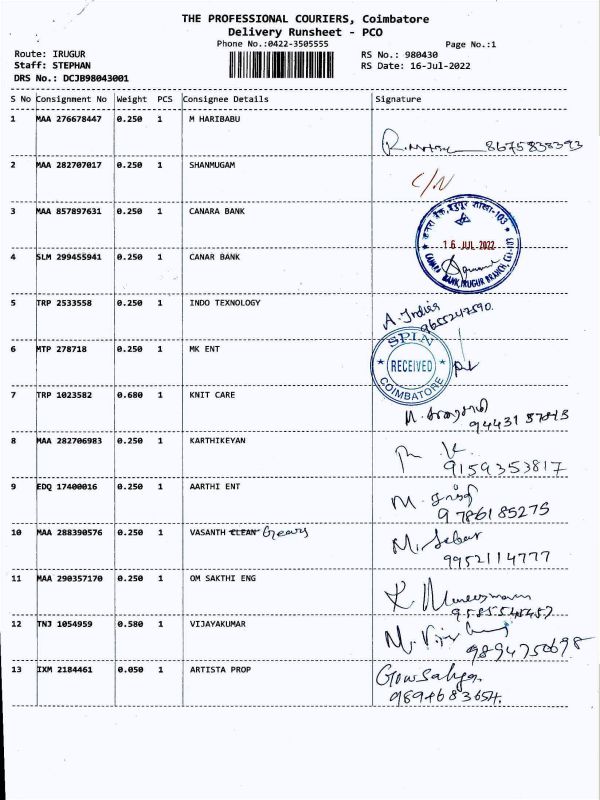 THE PROFESSIONAL COURIERS, Coimbatore
Delivery Runsheet - PCO
Phone No.:0422-3505555
Page No.:1
Route: IRUGUR
RS No.: 980430
Staff: STEPHAN
RS Date: 16-Jul-2022
DRS No.: DCJB98043001
S No Consignment No Weight PCS Consignee Details Signature
1 MAA 276678447 0.250 1 M HARIBABU
8675838393
2 MAA 282707017 0.250 1 SHANMUGAM
C/N
3 MAA 857897631 0.250 1 CANARA BANK
16 JUL 2022
4 SLM 299455941 0.250 1 CANAR BANK
CANARA BANK, IRUGUR BRANCH,
5 TRP 2533558 0.250 1 INDO TEXNOLOGY
A. India
9655247590.
6 MTP 278718 0.250 1 MK ENT
SPIN
RECEIVED
COIMBATORE
7 TRP 1023582 0.680 1 KNIT CARE
8 MAA 282706983 0.250 1 KARTHIKEYAN
9159353817
9 EDQ 17400016 0.250 1 AARTHI ENT
9786185275
10 MAA 288390576 0.250 1 VASANTH CLEAN Gears
9952114777
11 MAA 290357170 0.250 1 OM SAKTHI ENG
12 TNJ 1054959 0.580 1 VIJAYAKUMAR
9894750698
13 IXM 2184461 0.050 1 ARTISTA PROP
9894683654.